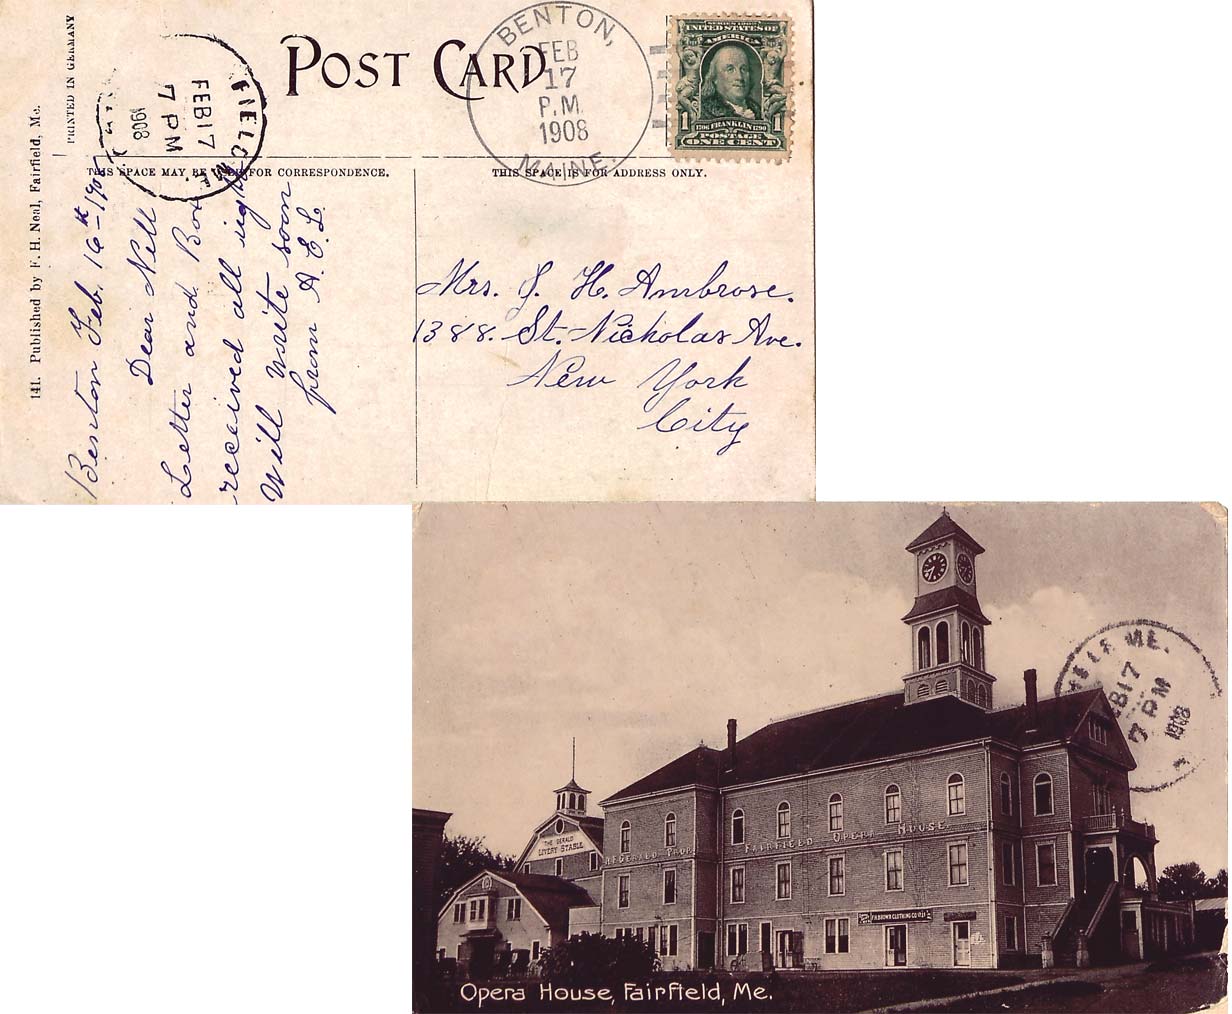 POST CARD
PRINTED IN GERMANY
141. Published by F. H. Neal, Fairfield, Me.
BENTON,
FEB
17
P.M.
1908
MAINE.
SERIES 1902
UNITED STATES OF
AMERICA
1 1706 FRANKLIN 1790 1
POSTAGE
ONE CENT
FIELD ME.
FEB 17
7 PM
1908
THIS SPACE MAY BE USED FOR CORRESPONDENCE.
THIS SPACE IS FOR ADDRESS ONLY.
Benton Feb. 16th - 190
Dear Nell
Letter and Box
received all right
Will write soon
from A. E. L.
Mrs. J. H. Ambrose.
1388. St. Nicholas Ave.
New York
City
ME.
B 17
7 PM
1908
THE GERALD
LIVERY STABLE
GERALD PROP.
FAIRFIELD OPERA HOUSE
BROWN CLOTHING CO.
Opera House, Fairfield, Me.